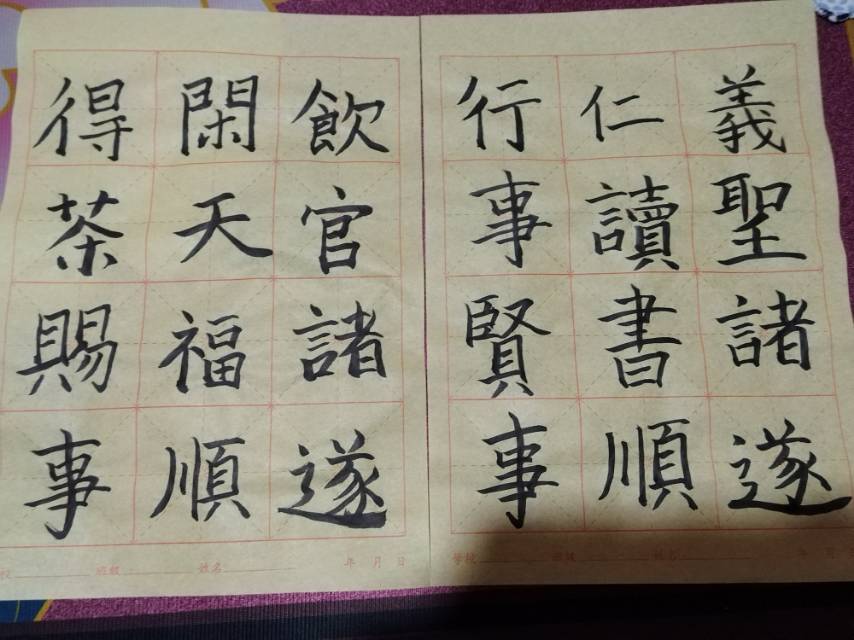 得閑飲
茶天官
賜福諸
事順遂
校 班级 姓名 年 月 日
行仁義
事讀聖
賢書諸
事順遂
学校 班级 姓名 年 月